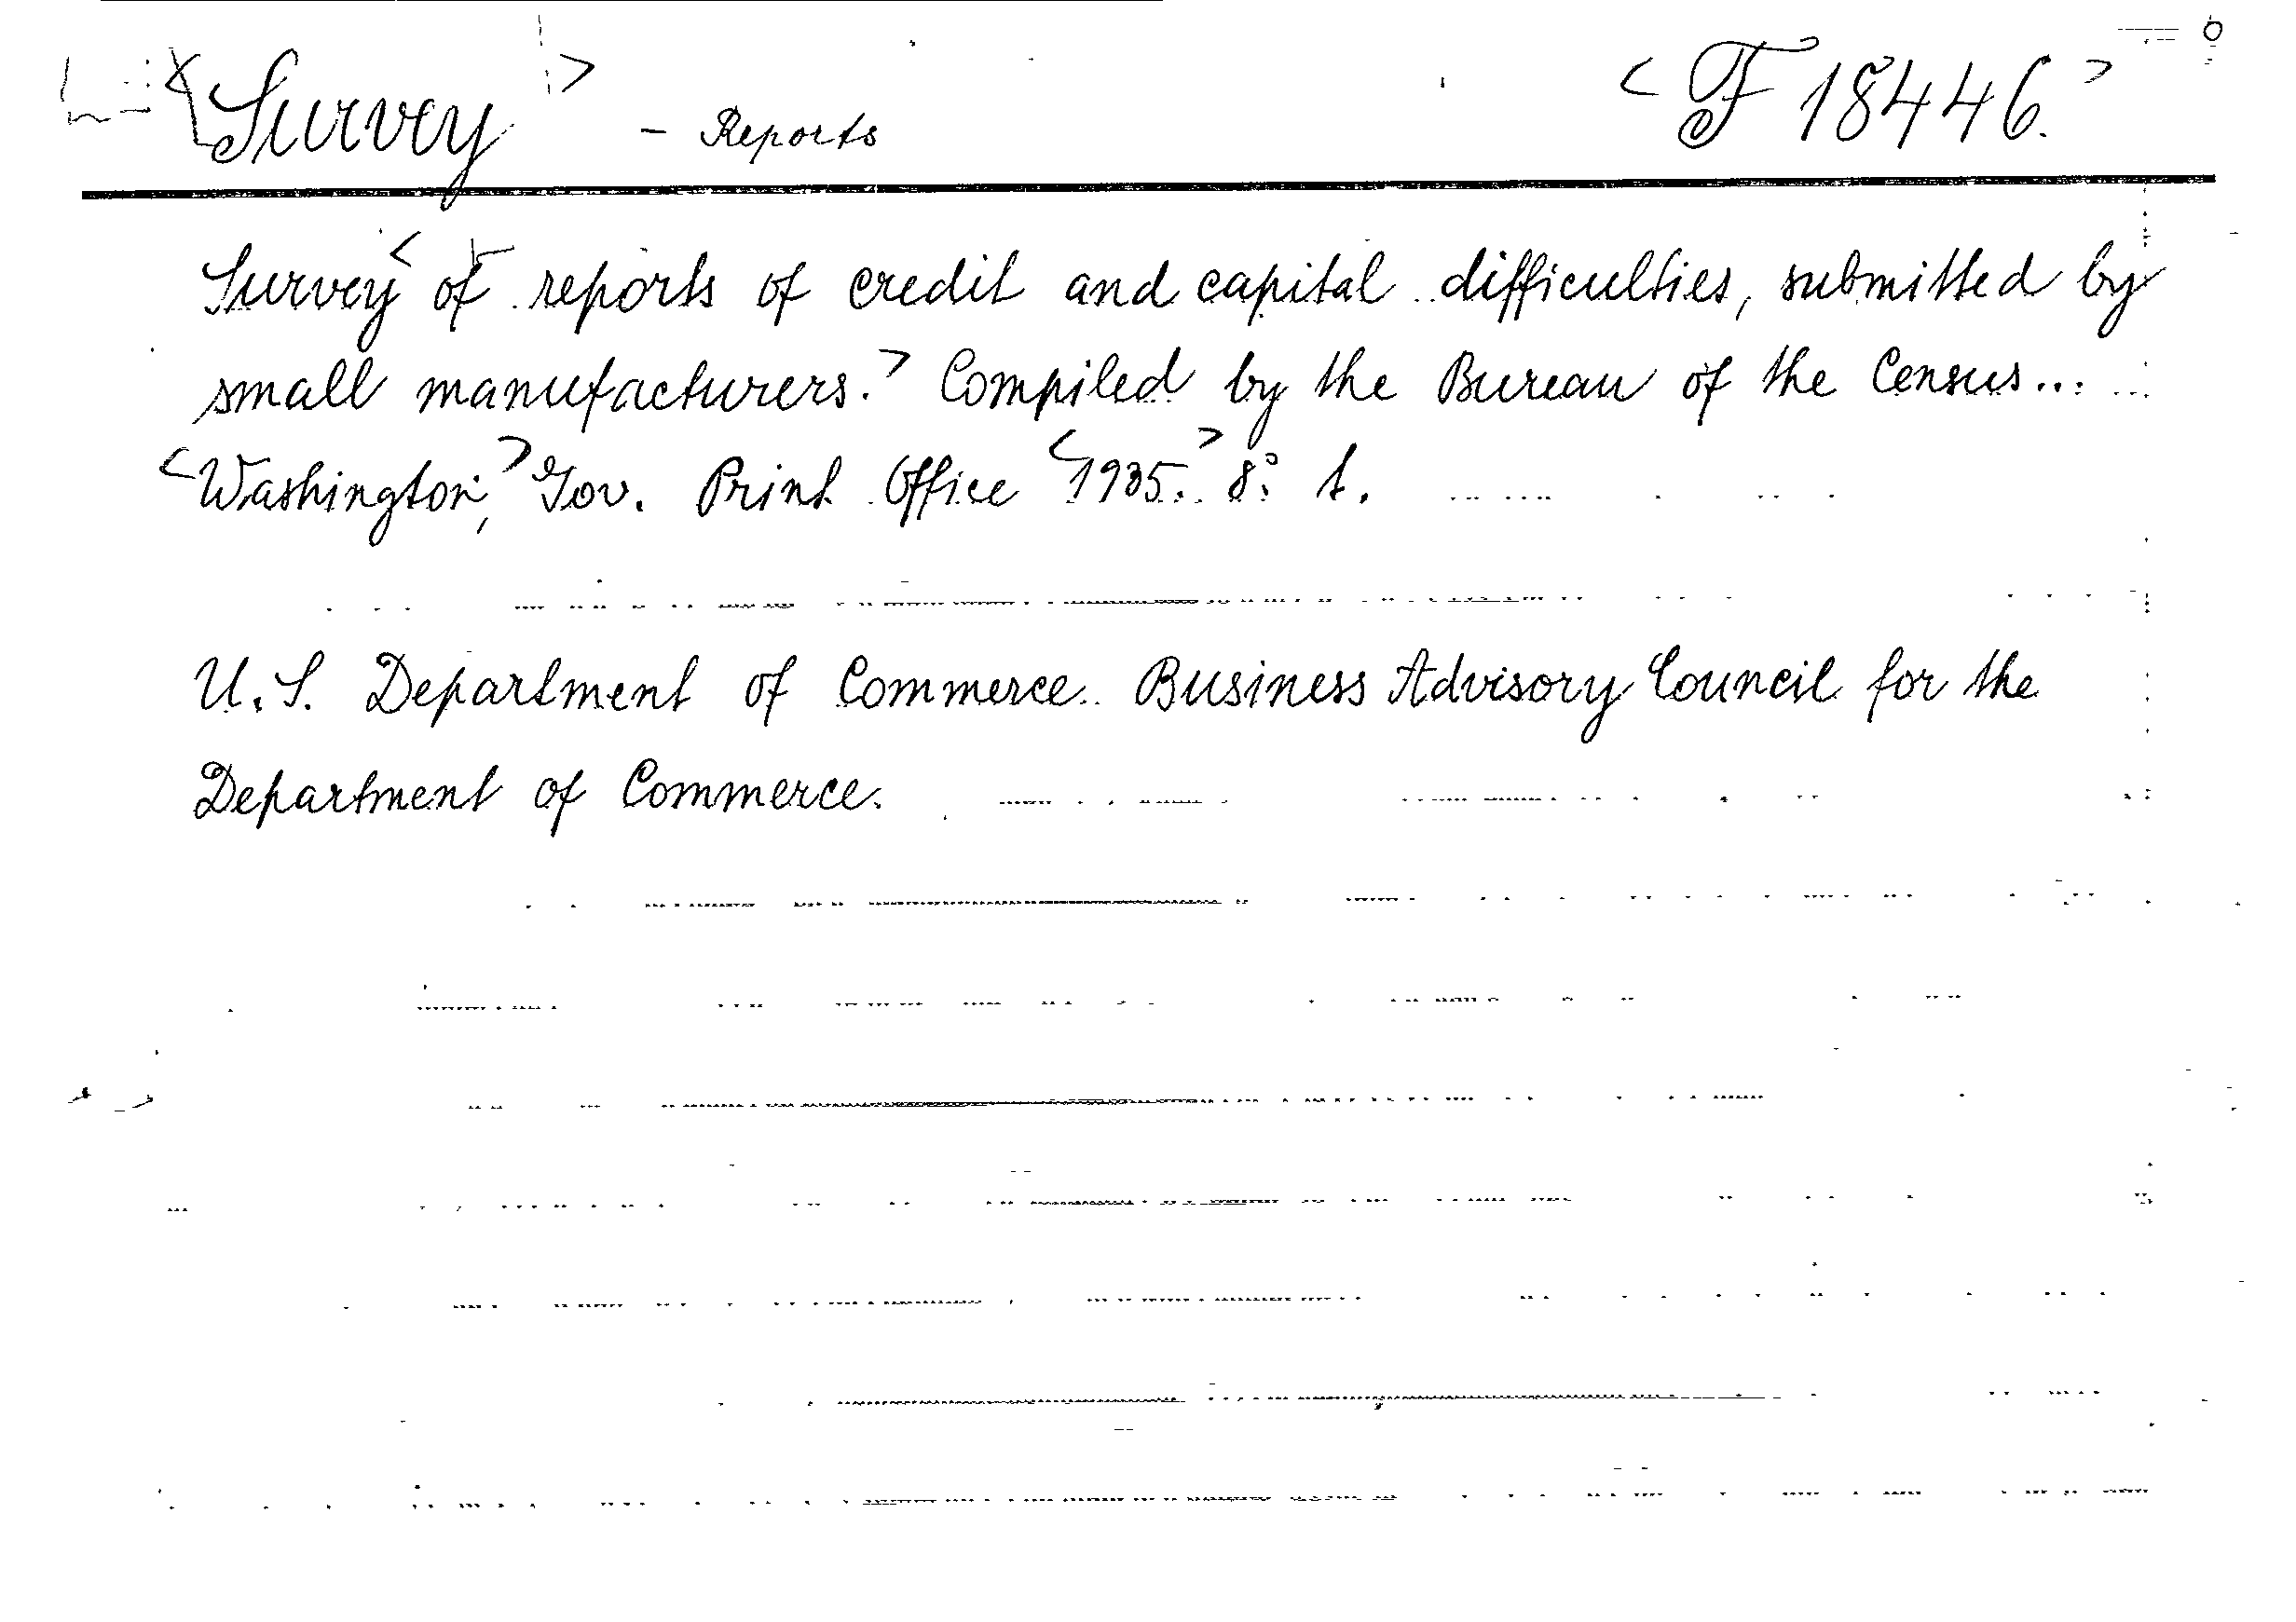 <Survey> - Reports <F 18446.>
Survey <of reports of credit and capital difficulties, submitted by
small manufacturers.> Compiled by the Bureau of the Census...
<Washington,> Gov. Print Office <1935.> 8° t.
U.S. Department of Commerce. Business Advisory Council for the
Department of Commerce.